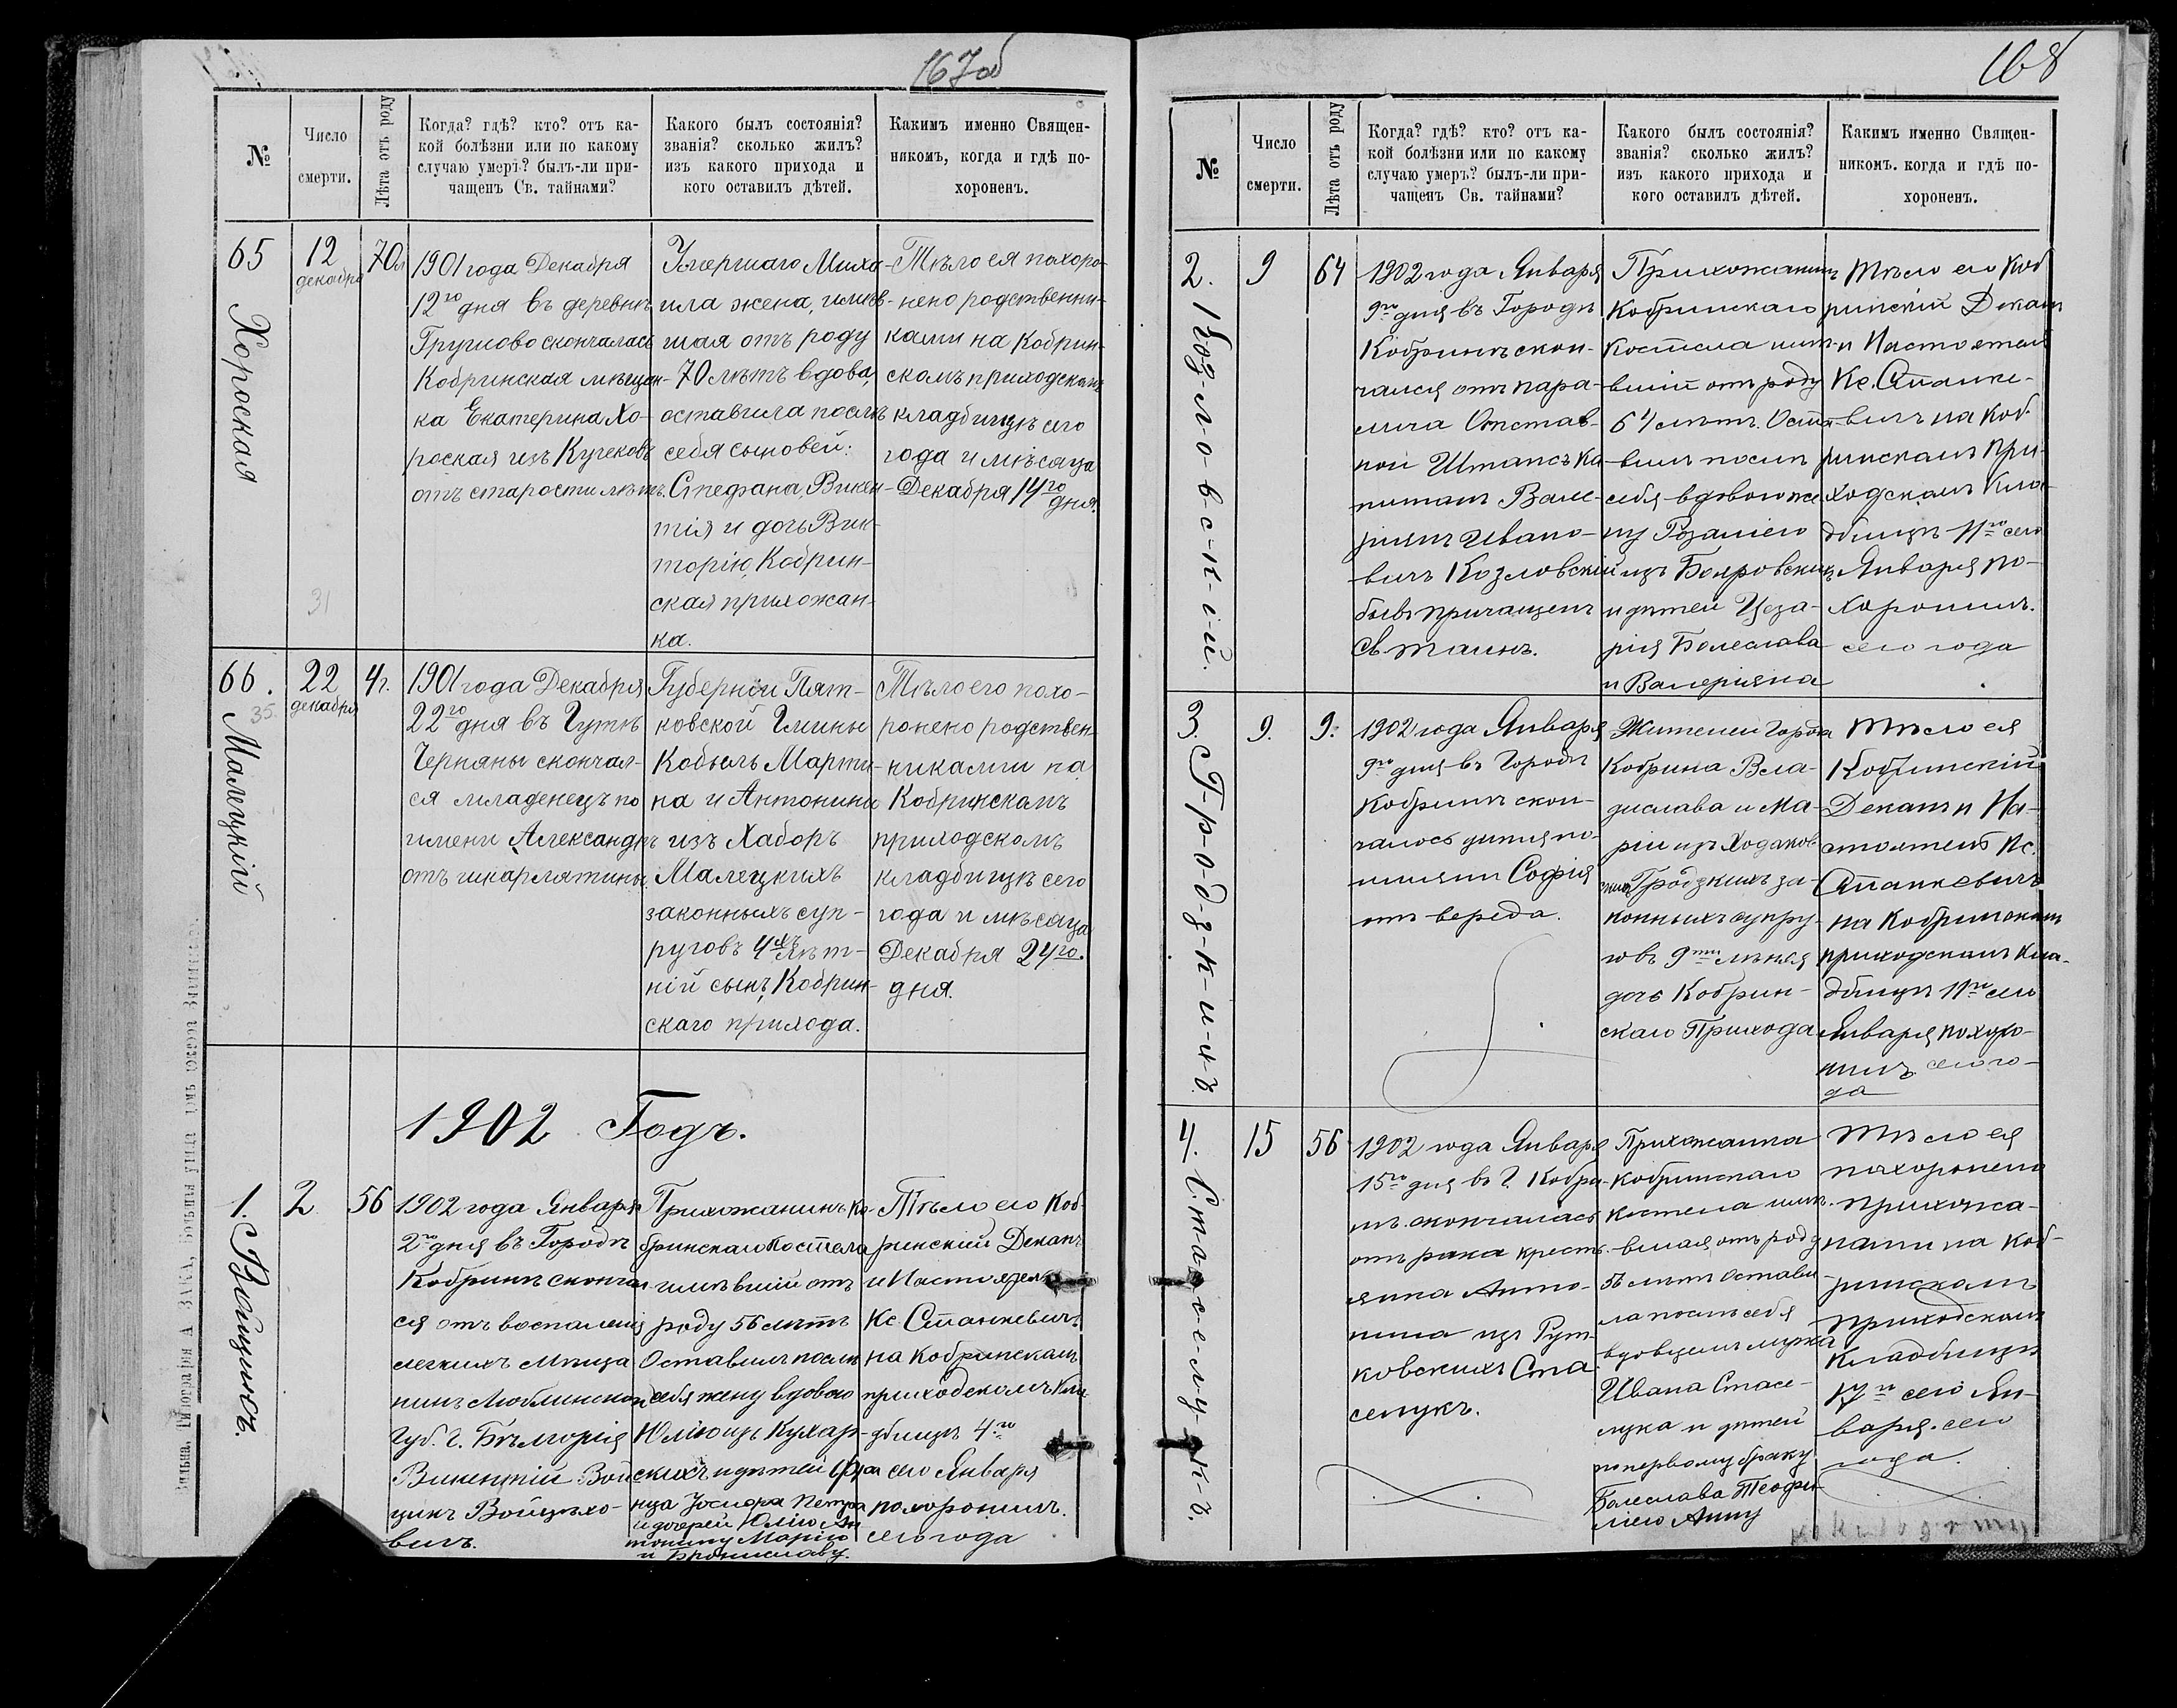 167об
№
Число
смерти.
Лѣта отъ роду
Когда? гдѣ? кто? отъ ка-
кой болѣзни или по какому
случаю умеръ? былъ-ли при-
чащенъ Св. тайнами?
Какого былъ состоянія?
званія? сколько жилъ?
изъ какого прихода и
кого оставилъ дѣтей.
Какимъ именно Священ-
никомъ, когда и гдѣ по-
хороненъ.
65
Хороская
12
декабря
31
70 л
1901 года Декабря
12го дня въ деревнѣ
Грушово скончалась
Кобринская мѣщан-
ка Екатерина Хо-
роская изъ Кучековъ
отъ старости лѣтъ.
Умершаго Миха-
ила жена, имѣв-
шая отъ роду
70 лѣтъ вдова,
оставила послѣ
себя сыновей:
Стефана, Викен-
тія и дочь Вик-
торію, Кобрин-
ская прихожан-
ка.
Тѣло ея похоро-
нено родственни-
ками на Кобрин-
скомъ приходскомъ
кладбищѣ сего
года и мѣсяца
Декабря 14го
дня.
66.
35.
Малецкій
22
декабря
4 г.
1901 года Декабря
22го дня въ Гутѣ
Черняны скончал-
ся младенецъ по
имени Александръ
отъ шкарлятины.
Губерніи Пят-
ковской Гмины
Кобыль Марти-
на и Антонины
изъ Хаборъ
Малецкихъ
законныхъ суп-
руговъ 4хъ лѣт-
ній сынъ, Кобрин-
скаго прихода.
Тѣло его похо-
ронено родствен-
никами на
Кобринскомъ
приходскомъ
кладбищѣ сего
года и мѣсяца
Декабря 24го.
дня.
1902 Годъ.
1. Войцикъ.
2
56
1902 года Января
2го дня въ Городѣ
Кобринѣ сконча
ся отъ воспаленія
легкихъ мѣща
нинъ Люблинской
Губ. г. Бѣлгорія
Викентій Вой
цикъ Войцѣхо-
вичъ.
Прихожанинъ Ко-
бринскаго Костела
имѣвшій отъ
роду 56 лѣтъ
Оставилъ послѣ
себя жену вдовою
Юлію изъ Кухар-
скихъ и дѣтей Фра
нца Іосифа Петра
и дочерей Юлію Ан
тонину Марію
и Брониславу.
Тѣло его Коб-
ринскій Деканъ
и Настоятель
Кс. Станкевичъ
на Кобринскомъ
приходскомъ Кла
дбищѣ 4го
сего Января
похоронилъ.
сего года
168
№
Число
смерти.
Лѣта отъ роду
Когда? гдѣ? кто? отъ ка-
кой болѣзни или по какому
случаю умеръ? былъ-ли при-
чащенъ Св. тайнами?
Какого былъ состоянія?
званія? сколько жилъ?
изъ какого прихода и
кого оставилъ дѣтей.
Какимъ именно Священ-
никомъ. когда и гдѣ по-
хороненъ.
2. Коз-л-о-в-с-к-і-й.
9
64
1902 года Января
9го дня въ Городѣ
Кобринѣ скон-
чался отъ пара-
лича Отстав-
ной Штабсъ Ка-
питанъ Вале-
ріянъ Ивано-
вичъ Козловскій
бывъ причащенъ
Св. таинъ.
Прихожанинъ
Кобринскаго
Костела имѣ-
вшій отъ роду
64 лѣтъ. Оста-
вилъ послѣ
себя вдовою же
ну Розалію
изъ Бояровскихъ
и дѣтей Цеза-
рія Болеслава
и Валеріяна
Тѣло его Коб
ринскій Деканъ
и Настоятель
Кс. Станке-
вичъ на Коб-
ринскомъ При-
ходскомъ Кла-
дбищѣ 11го сего
Января по-
хоронилъ.
сего года
3. Г-р-о-д-з-к-и-х-ъ.
9.
9.
1902 года Января
9го дня въ Городѣ
Кобринѣ скон-
чалось дитя по
имени Софія
отъ вереда.
Жителей Города
Кобрина Вла-
дислава и Ма-
ріи изъ Ходаков-
скихъ Гродзкихъ за-
конныхъ супру-
говъ 9ти лѣтняя
дочь Кобрин-
скаго Прихода
Тѣло ея
Кобринскій
Деканъ и На-
стоятель Кс.
Станкевичъ
на Кобринскомъ
приходскомъ Кла-
дбищѣ 11го сего
Января похоро-
нилъ сего го-
да
4. С-т-а-с-е-л-у-к-ъ.
15
56
1902 года Января
15го дня въ Г. Кобри-
нѣ скончалась
отъ рака кресть-
янка Анто-
нина изъ Рут-
ковскихъ Ста
селукъ.
Прихожанка
Кобринскаго
Костела имѣ-
вшая отъ роду
56 лѣтъ Остави-
ла послѣ себя
вдовцемъ мужа
Ивана Стасе-
лука и дѣтей
по первому браку
Болеслава Теофи-
лію Анну
Тѣло ея
похоронено
прихожа-
нами на Коб-
ринскомъ
приходскомъ
Кладбищѣ
17го сего Ян-
варя. сего
года.